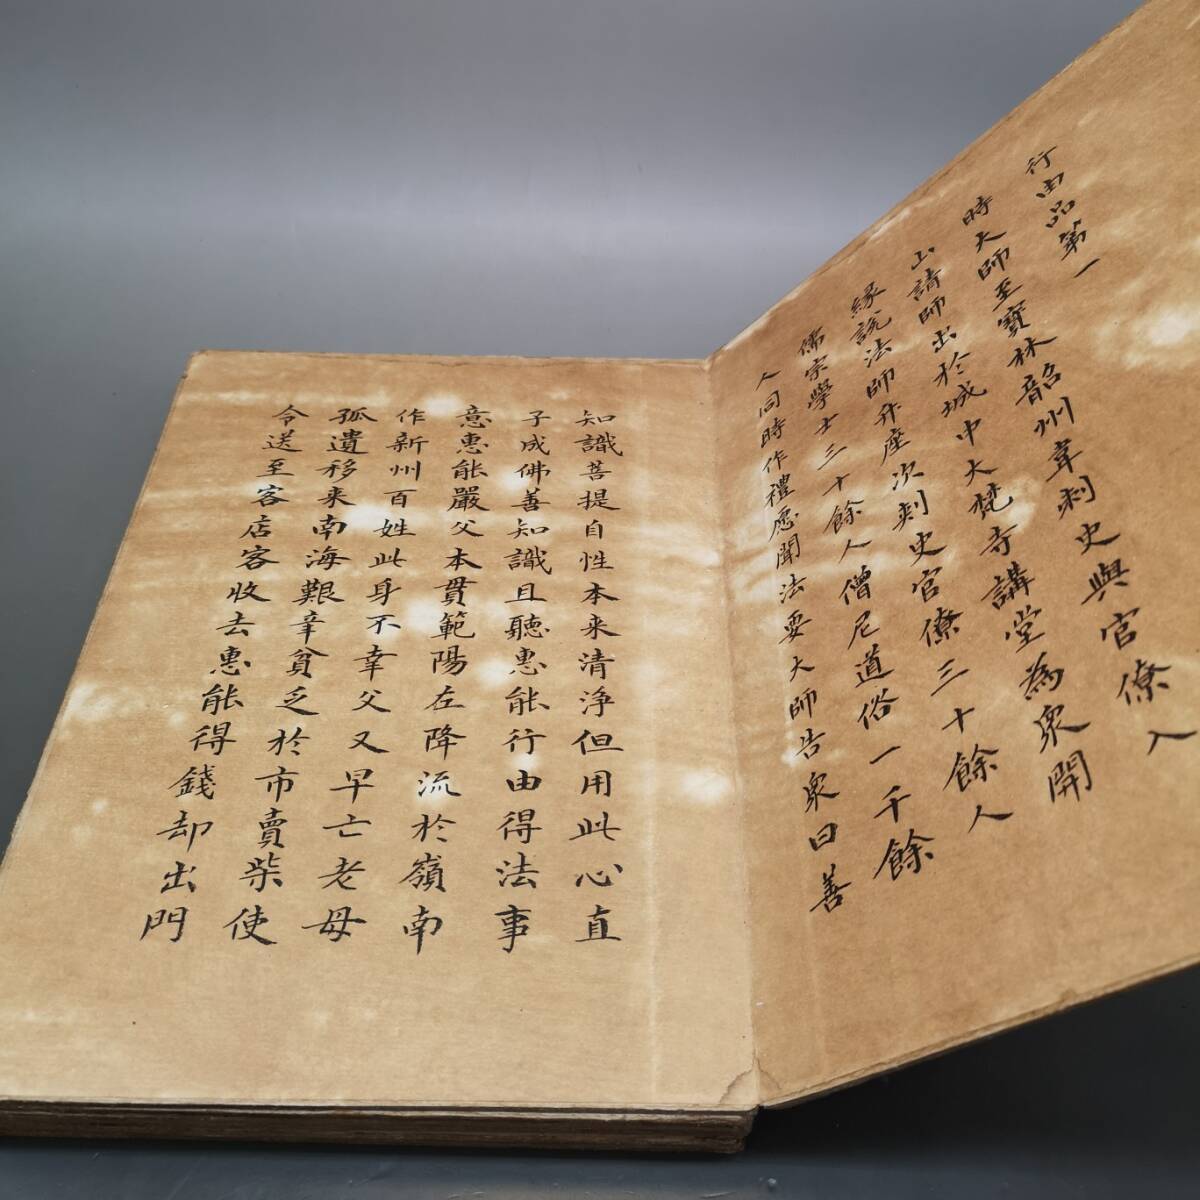 行由品第一
時大師至寶林韶州韋刺史與官僚入
山請師出於城中大梵寺講堂為眾開
緣說法師升座次刺史官僚三十餘人
儒宗學士三十餘人僧尼道俗一千餘
人同時作禮愿聞法要大師告眾曰善
知識菩提自性本来清淨但用此心直
子成佛善知識且聽惠能行由得法事
意惠能嚴父本貫範陽左降流於嶺南
作新州百姓此身不幸父又早亡老母
孤遺移来南海艱辛貧乏於市賣柴使
令送至客店客收去惠能得錢却出門